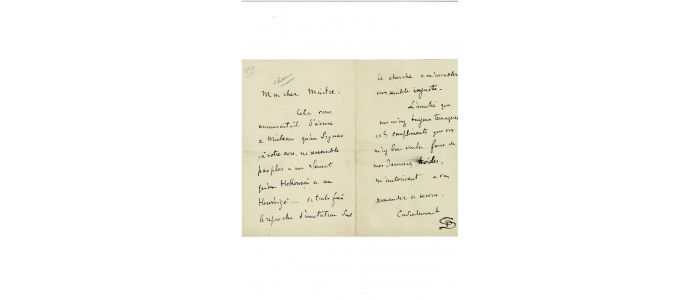 Mon cher Maître -
Cela vous
ennuierait-il d'écrire
a Mirbeau qu'un Signac
, à votre avis, ne ressemble
pas plus a un Seurat
qu'un Hokousaï a un
Hiroshigé ... si tu le fais
le reproche d'imitation dont
je cherche a m'accabler
vous semble injuste -
L'amitié que
vous m'avez toujours témoignée
et les compliments que vous
m'avez bien voulu faire de
mes dernières toiles,
m'autorisent a vous
demander ce service.
Cordialement